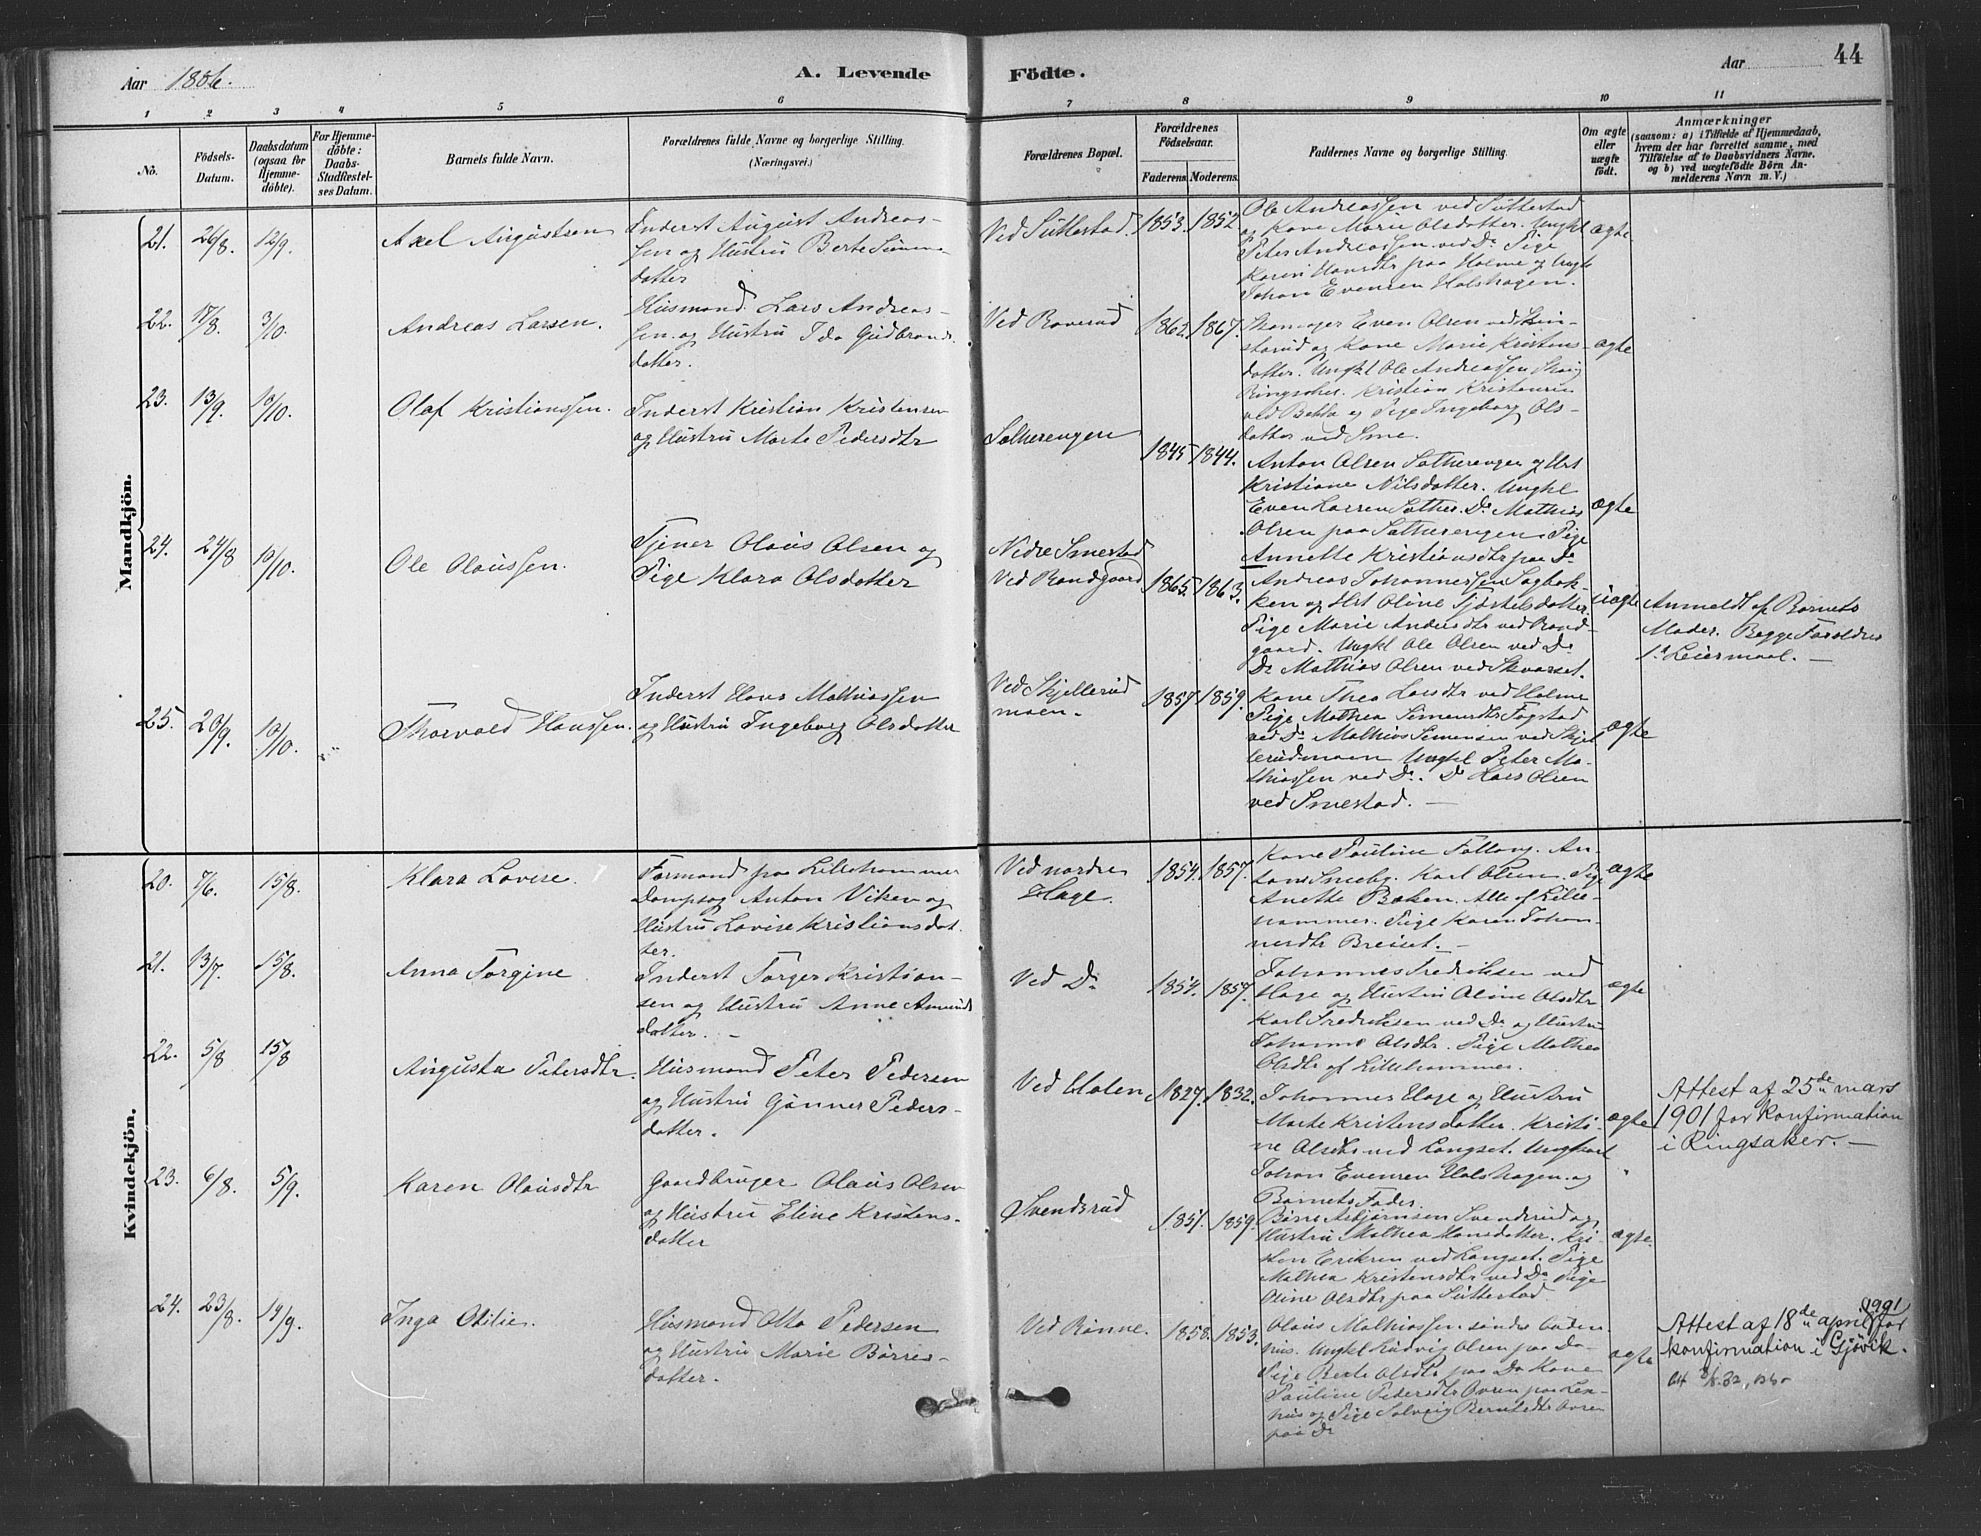 Aar 1886.
A. Levende Födte.
Aar
44
1 2 3 4 5 6 7 8 9 10 11
No.
Födsels-Datum.
Daabsdatum (ogsaa for Hjemme-döbte).
For Hjemme-döbte: Daabs-Stadfæstel-ses Datum.
Barnets fulde Navn.
Forældrenes fulde Navne og borgerlige Stilling. (Næringsvei.)
Forældrenes Bopæl.
Forældrenes Födselsaar.
Faderens. Moderens.
Faddernes Navne og borgerlige Stilling.
Om ægte eller uægte födt.
Anmærkninger
(saasom: a) i Tilfælde af Hjemmedaab,
hvem der har forrettet samme, med
Tilföielse af to Daabsvidners Navne,
og b) ved uægtefödte Börn An-
melderens Navn m. V.)
Mandkjön.
21. 26/8. 12/9. Axel Augustsen
Inderst August Andreas-
sen og Hustru Berte Simens-
datter
Ved Suttestad. 1853. 1852
Ole Andreassen ved Suttestad
og Kone Marie Olsdatter. Ungkl
Peter Andreassen ved Do Pige
Karen Hansdtr paa Holme og Ungk
Johan Evensen Holshagen.
ægte
22. 17/8. 3/10. Andreas Larsen.
Husmand Lars Andreas-
sen og Hustru Ida Gudbrands
datter.
Ved Roverud 1862. 1867.
Skomager Even Olsen ved
og Kone Marie Kristens-
datter. Ungkl Ole Andreassen
Ringsaker. Kristian Kristensen
ved Bække og Pige Ingeborg Ols-
datter ved Sme.
ægte
23. 13/9. 10/10. Olaf Kristianssen.
Inderst Kristian Kristensen
og Hustru Marte Pedersdtr
Sætherengen 1845 1844.
Anton Olsen Sætherengen og Hst
Kristiane Nilsdatter. Ungkl
Even Larsen Sæther. Do Mathias
Olsen paa Sætherengen. Pige
Annette Kristiansdtr paa Do
ægte
24. 24/8 10/10. Ole Olaussen.
Tjener Olaus Olsen og
Pige Klara Olsdatter
Nedre Smestad
Ved Randgaard 1865. 1863.
Andreas Johannessen Sagbak-
ken og Hst Oline Tjøstelsdatter.
Pige Marie Andersdtr ved Rand-
gaard. Ungkl Ole Olsen ved Do
Do Mathias Olsen ved Skvarset.
uægte
Anmeldt af Barnets
Moder. Begge Forældres
1ste Leiermaal. —
25. 20/9. 10/10. Thorvald Hanssen.
Inderst Hans Mathiassen
og Hustru Ingeborg Olsdatter
Ved Skjellerud
moen. 1857 1859.
Kone Thea Larsdtr ved Holme
Pige Mathea Simensdtr Fogstad
ved Do Mathias Simensen ved Skjel
lerudmoen Ungkl Peter Ma-
thiassen ved Do. Do Lars Olsen
ved Smestad. —
ægte
Kvindekjön.
20. 7/6. 15/8. Klara Lovise.
Formand paa Lillehammer
Dampsag Anton Viken og
Hustru Lovise Kristiansdat-
ter.
Ved nordre
Hage. 1854. 1857.
Kone Pauline Følling. An-
ton Smeby. Karl Olsen. Pige
Anette Bakken. Alle af Lille-
hammer. Pige Karen Johan-
nesdtr Breiset. —
ægte
21. 13/7. 15/8. Anna Torgine
Inderst Torger Kristian-
sen og Hustru Anne Amunds
datter. —
Ved Do 1854. 1857.
Johannes Fredriksen ved
Hage og Hustru Oline Olsdtr
Karl Fredriksen ved Do og Hustru
Johanne Olsdtr. Pige Mathea
Olsdtr af Lillehammer.
ægte
22. 5/8 15/8 Augusta Petersdtr.
Husmand Peter Pedersen
og Hustru Gunner Peders-
datter.
Ved Holen 1827. 1832.
Johannes Hage og Hustru
Marte Kristensdatter. Kristi-
ne Olsdtr ved Langset. Ungkarl
Johan Evensen Holshagen og
Barnets Fader.
ægte
Attest af 25de mars
1901 for Konfirmation
i Ringsaker. —
23. 6/8. 5/9. Karen Olausdtr
Gaardbruger Olaus Olsen
og Hustru Eline Kristens-
datter
Svendsrud 1851. 1859.
Børre Asbjørnsen Svendsrud og
Hustru Mathea Hansdatter. Kri-
sten Eriksen ved Langset. Pige
Mathea Kristensdtr ved Do Pige
Oline Olsdtr paa Suttestad.
ægte.
24. 23/8. 19/9. Inga Otilie.
Husmand Otto Pedersen
og Hustru Marie Børres-
datter.
Ved Rønne. 1858. 1853.
Olaus Mathiassen søndre
Ungkl Ludvig Olsen paa Do
Pige Berte Olsdtr paa Do Kone
Pauline Pedersdtr Ovren paa
og Pige Solveig Berntsdtr Ovren
paa Do
ægte
Attest af 18de april 1901 for
Konfirmation i Gjövik.